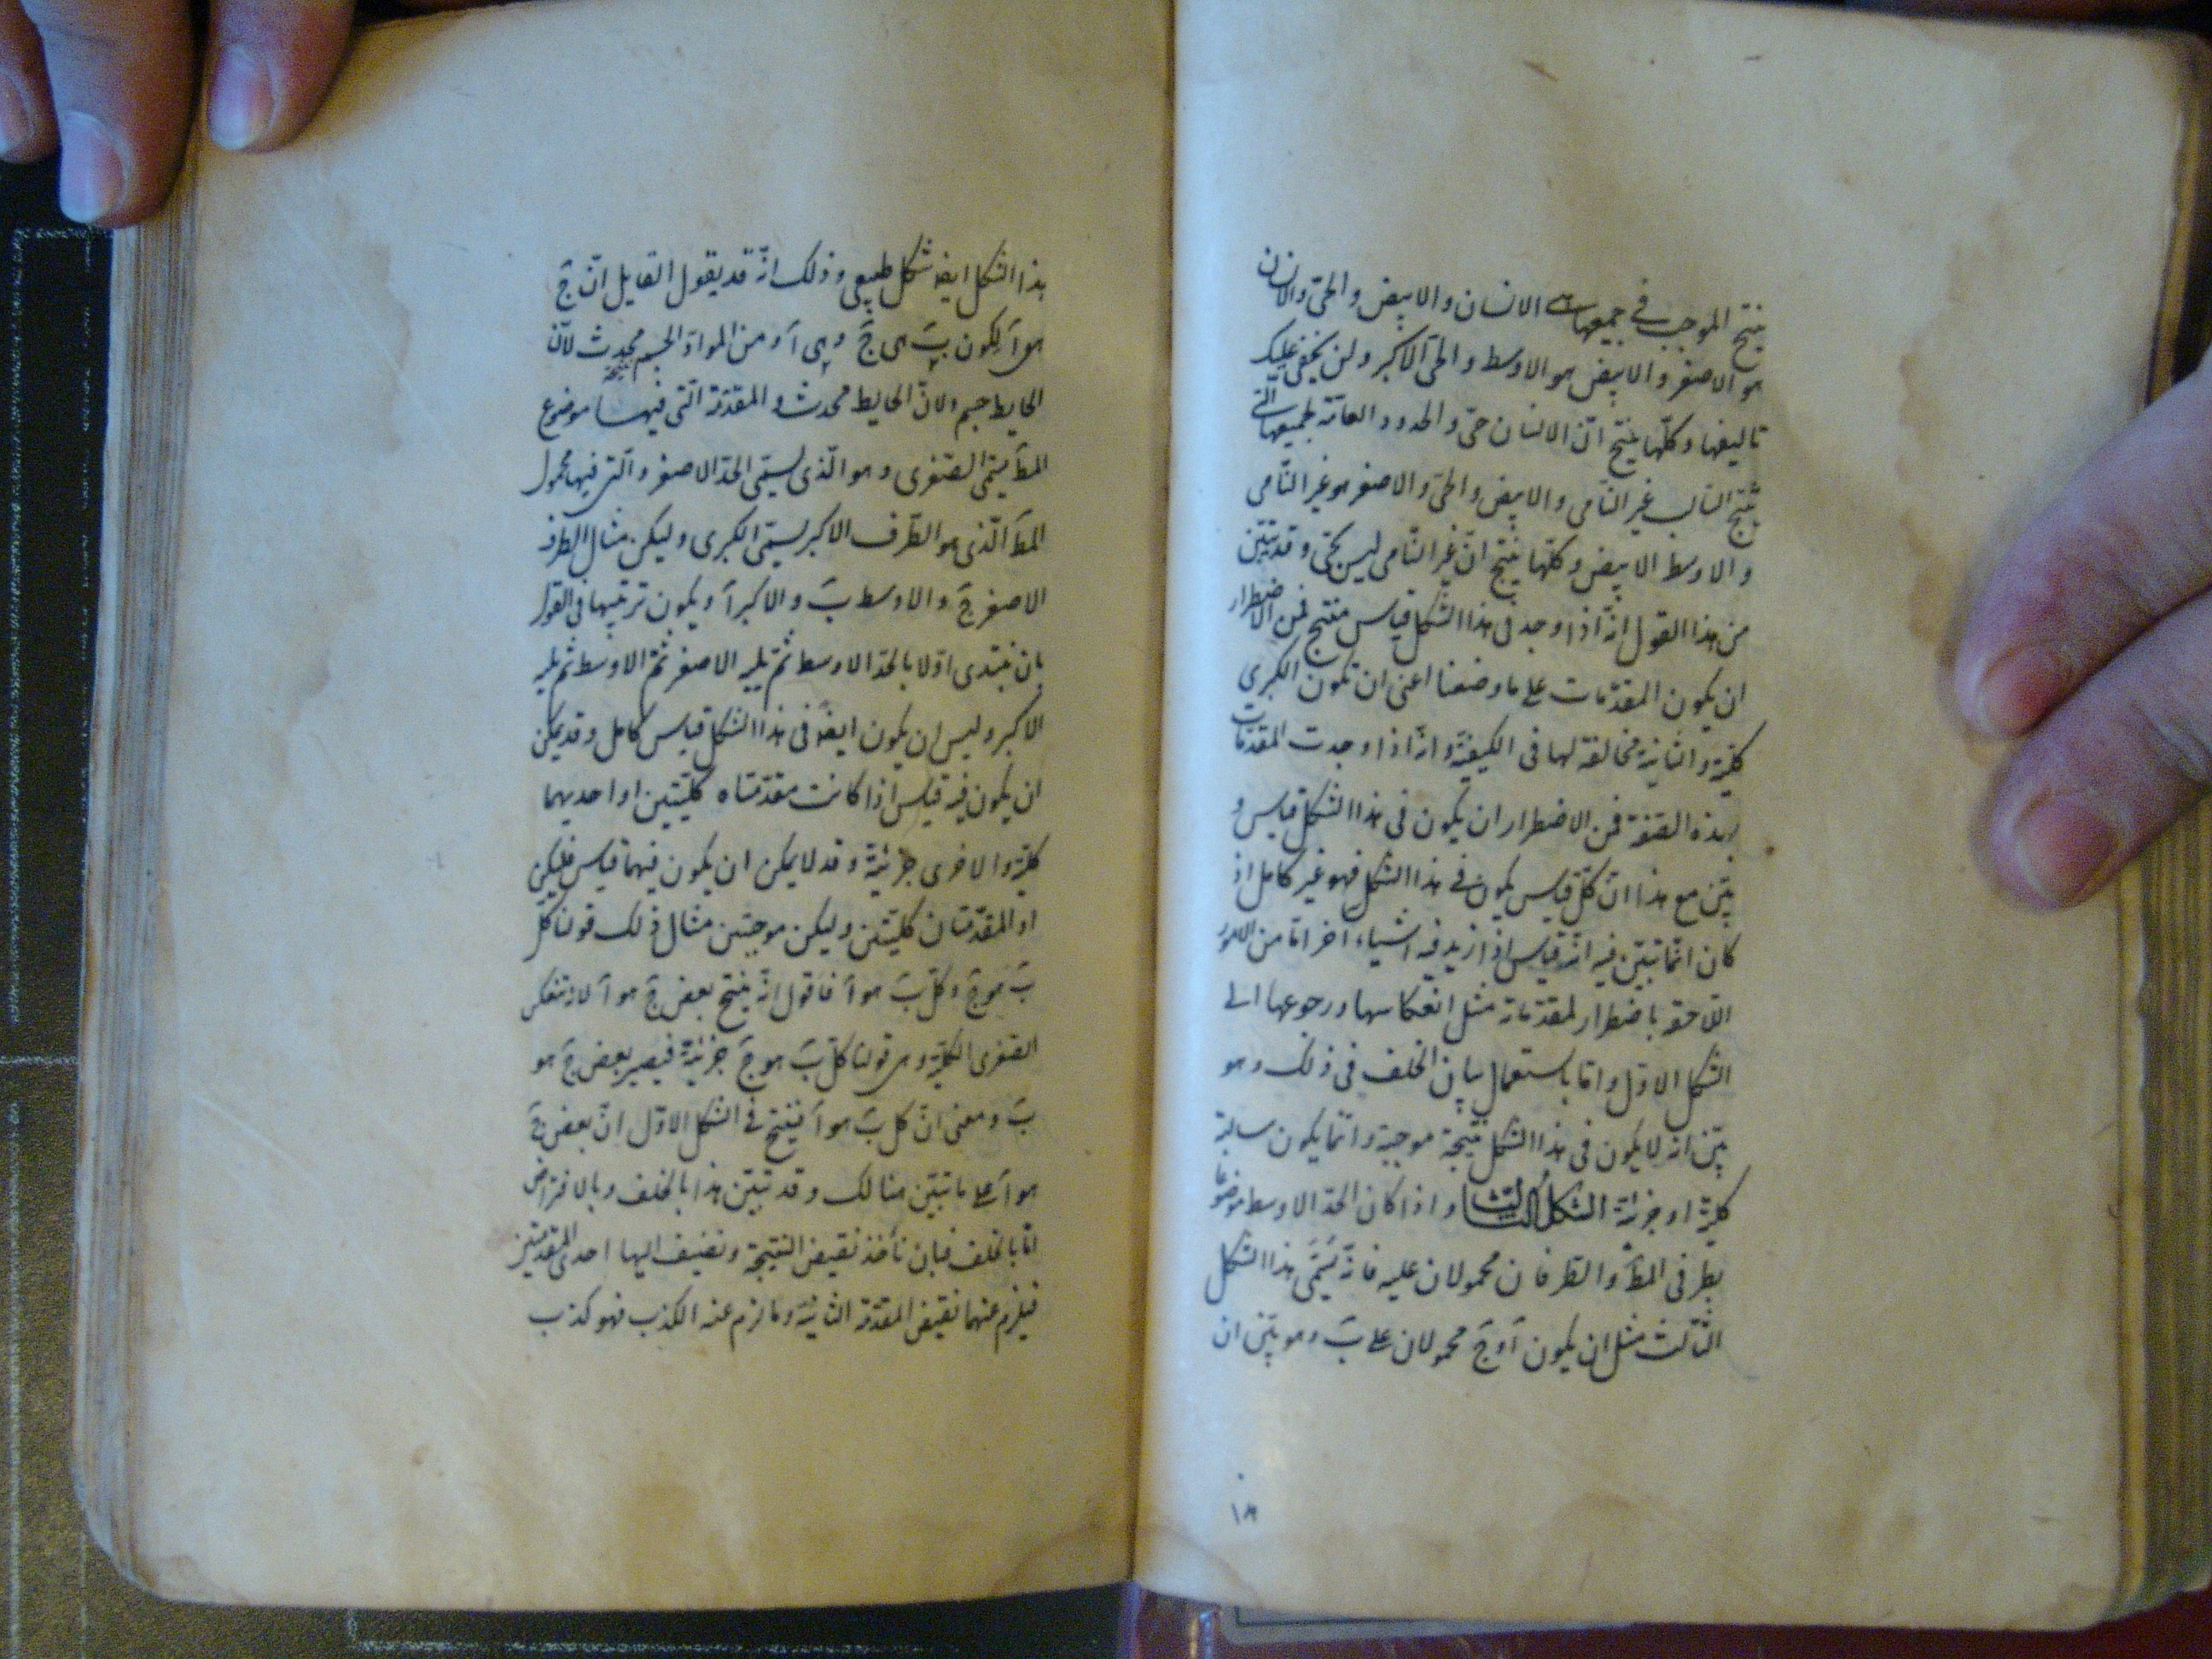 ينتج الموجب في جميعها هى الانسان والابيض والحىّ والانسان
هو الاصغر والابيض هو الاوسط والحىّ الاكبر ولن يخفى عليك
تاليفها وكلّها ينتج انّ الانسان حىّ والحدود العامّة لجميعها الّتى
تنتج السالب غير النّامى والابيض والحىّ والاصغر هو غير النّامى
والاوسط الابيض وكلّها ينتج انّ غير النّامى ليس بحىّ وقد تبيّن
من هذا القول انّه اذا وجد فى هذا الشّكل قياس منتج فمن الاضطرار
ان يكون المقدّمات على ما وضعنا اعنى ان تكون الكبرى
كليّة والثّانية مخالفة لها فى الكيفيّة وانّه اذا وجدت المقدّمات
بهذه الصّفة فمن الاضطرار ان يكون فى هذا الشّكل قياس و
بيّن مع هذا انّ كلّ قياس يكون فى هذا الشكل فهو غير كامل اذ
كان انّما تبيّن فيه انّه قياس اذا زيد فيه اشياء اخر امّا من الامور
اللّاحقة باضطرار لمقدّماته مثل انعكاسها ورجوعها الى
الشّكل الاوّل وامّا باستعمال بيان الخلف فى ذلك وهو
بيّن انّه لا يكون فى هذا الشّكل نتيجة موجبة وانّما يكون سالبة
كليّة او جزئيّة الشكل الثالث واذا كان الحدّ الاوسط موضوعا
بطرفى المطَ والطّرفان محمولان عليه فانّه يُسَمَّى هذا الشّكل
الثّالث مثل ان يكون آ و جَ محمولان على بَ وهو بيّن ان
١٨
هذا الشّكل ايضا شكل طبيعى وذلك انّه قد يقول القايل انّ جَ
هى آ لكون بَ هى جَ وهى آ ومن الموادّ الجسم محدث لانّ
الحايط جسم ولانّ الحايط محدث والمقدّمة الّتى فيها موضوع
المطَ يسمّى الصّغرى وهو الّذى يسمّى الحدّ الاصغر والّتى فيها محمول
المطَ الّذى هو الطّرف الاكبر يسمّى الكبرى وليكن مثال الطرف
الاصغر جَ والاوسط بَ والاكبر آ ويكون ترتيبها فى القول
بان نبتدى اوّلا بالحدّ الاوسط ثمّ يليه الاصغر ثمّ الاوسط ثم يليه
الاكبر وليس ان يكون ايضا فى هذا الشكل قياس كامل وقد يمكن
ان يكون فيه قياس اذا كانت مقدّمتاه كليّتين او احديهما
كليّة والاخرى جزئيّة وقد لا يمكن ان يكون فيهما قياس فليكن
او المقدّمتان كليّتين وليكن موجبتين مثال ذلك قولنا كلّ
بَ هو جَ وكلّ بَ هو آ فاقول انّه ينتج بعض جَ هو آ لانه تنعكس
الصّغرى الكليّة وهى قولنا كلّ بَ هو جَ جزئيّة فيصير بعض جَ هو
بَ ومعنى انّ كلّ بَ هو آ فينتج فى الشّكل الاوّل انّ بعض جَ
هو آ على ما تبيّن هنالك وقد تبيّن هذا بالخلف وبالافتراض
امّا بالخلف فبان نأخذ نقيض النّتيجة ونضيف اليها احدى المقدّمتين
فيلزم عنهما نقيض المقدّمة الثانية وما لزم عنه الكذب فهو كذب